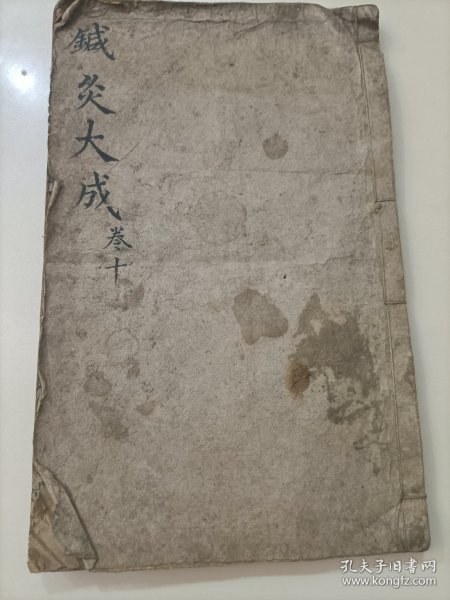 鍼灸大成
卷十
孔夫子旧书网
www.kongfz.com